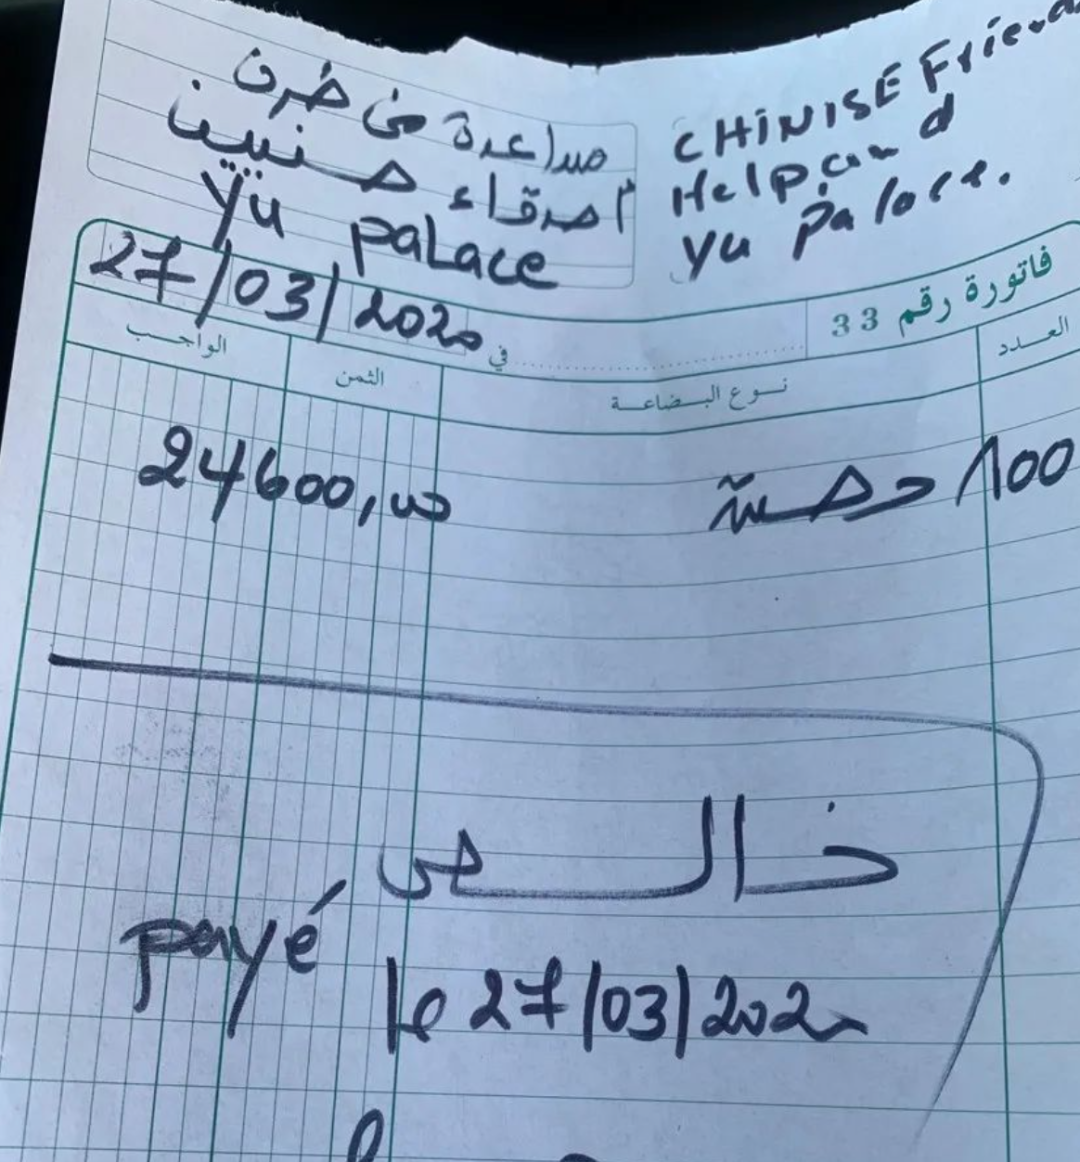 مساعدة من طرف
أصدقاء صنيين
Yu palace
CHINISE Friend
Help and
Yu Palace.
فاتورة رقم 33
27/03/2020 في
العدد نوع البضاعة الثمن الواجب
100 حصة 24600,00
خالص
payé
le 27/03/2020